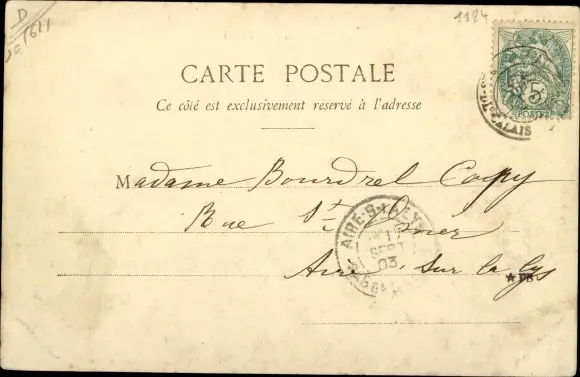 D
1611
1124
5
POSTES
CALAIS
CARTE POSTALE
Ce côté est exclusivement reservé à l'adresse
Madame Bourdrel Copy
Rue St Omer
AIRE-S-LA-LYS
17
SEPT
03
Aire sur la Lys